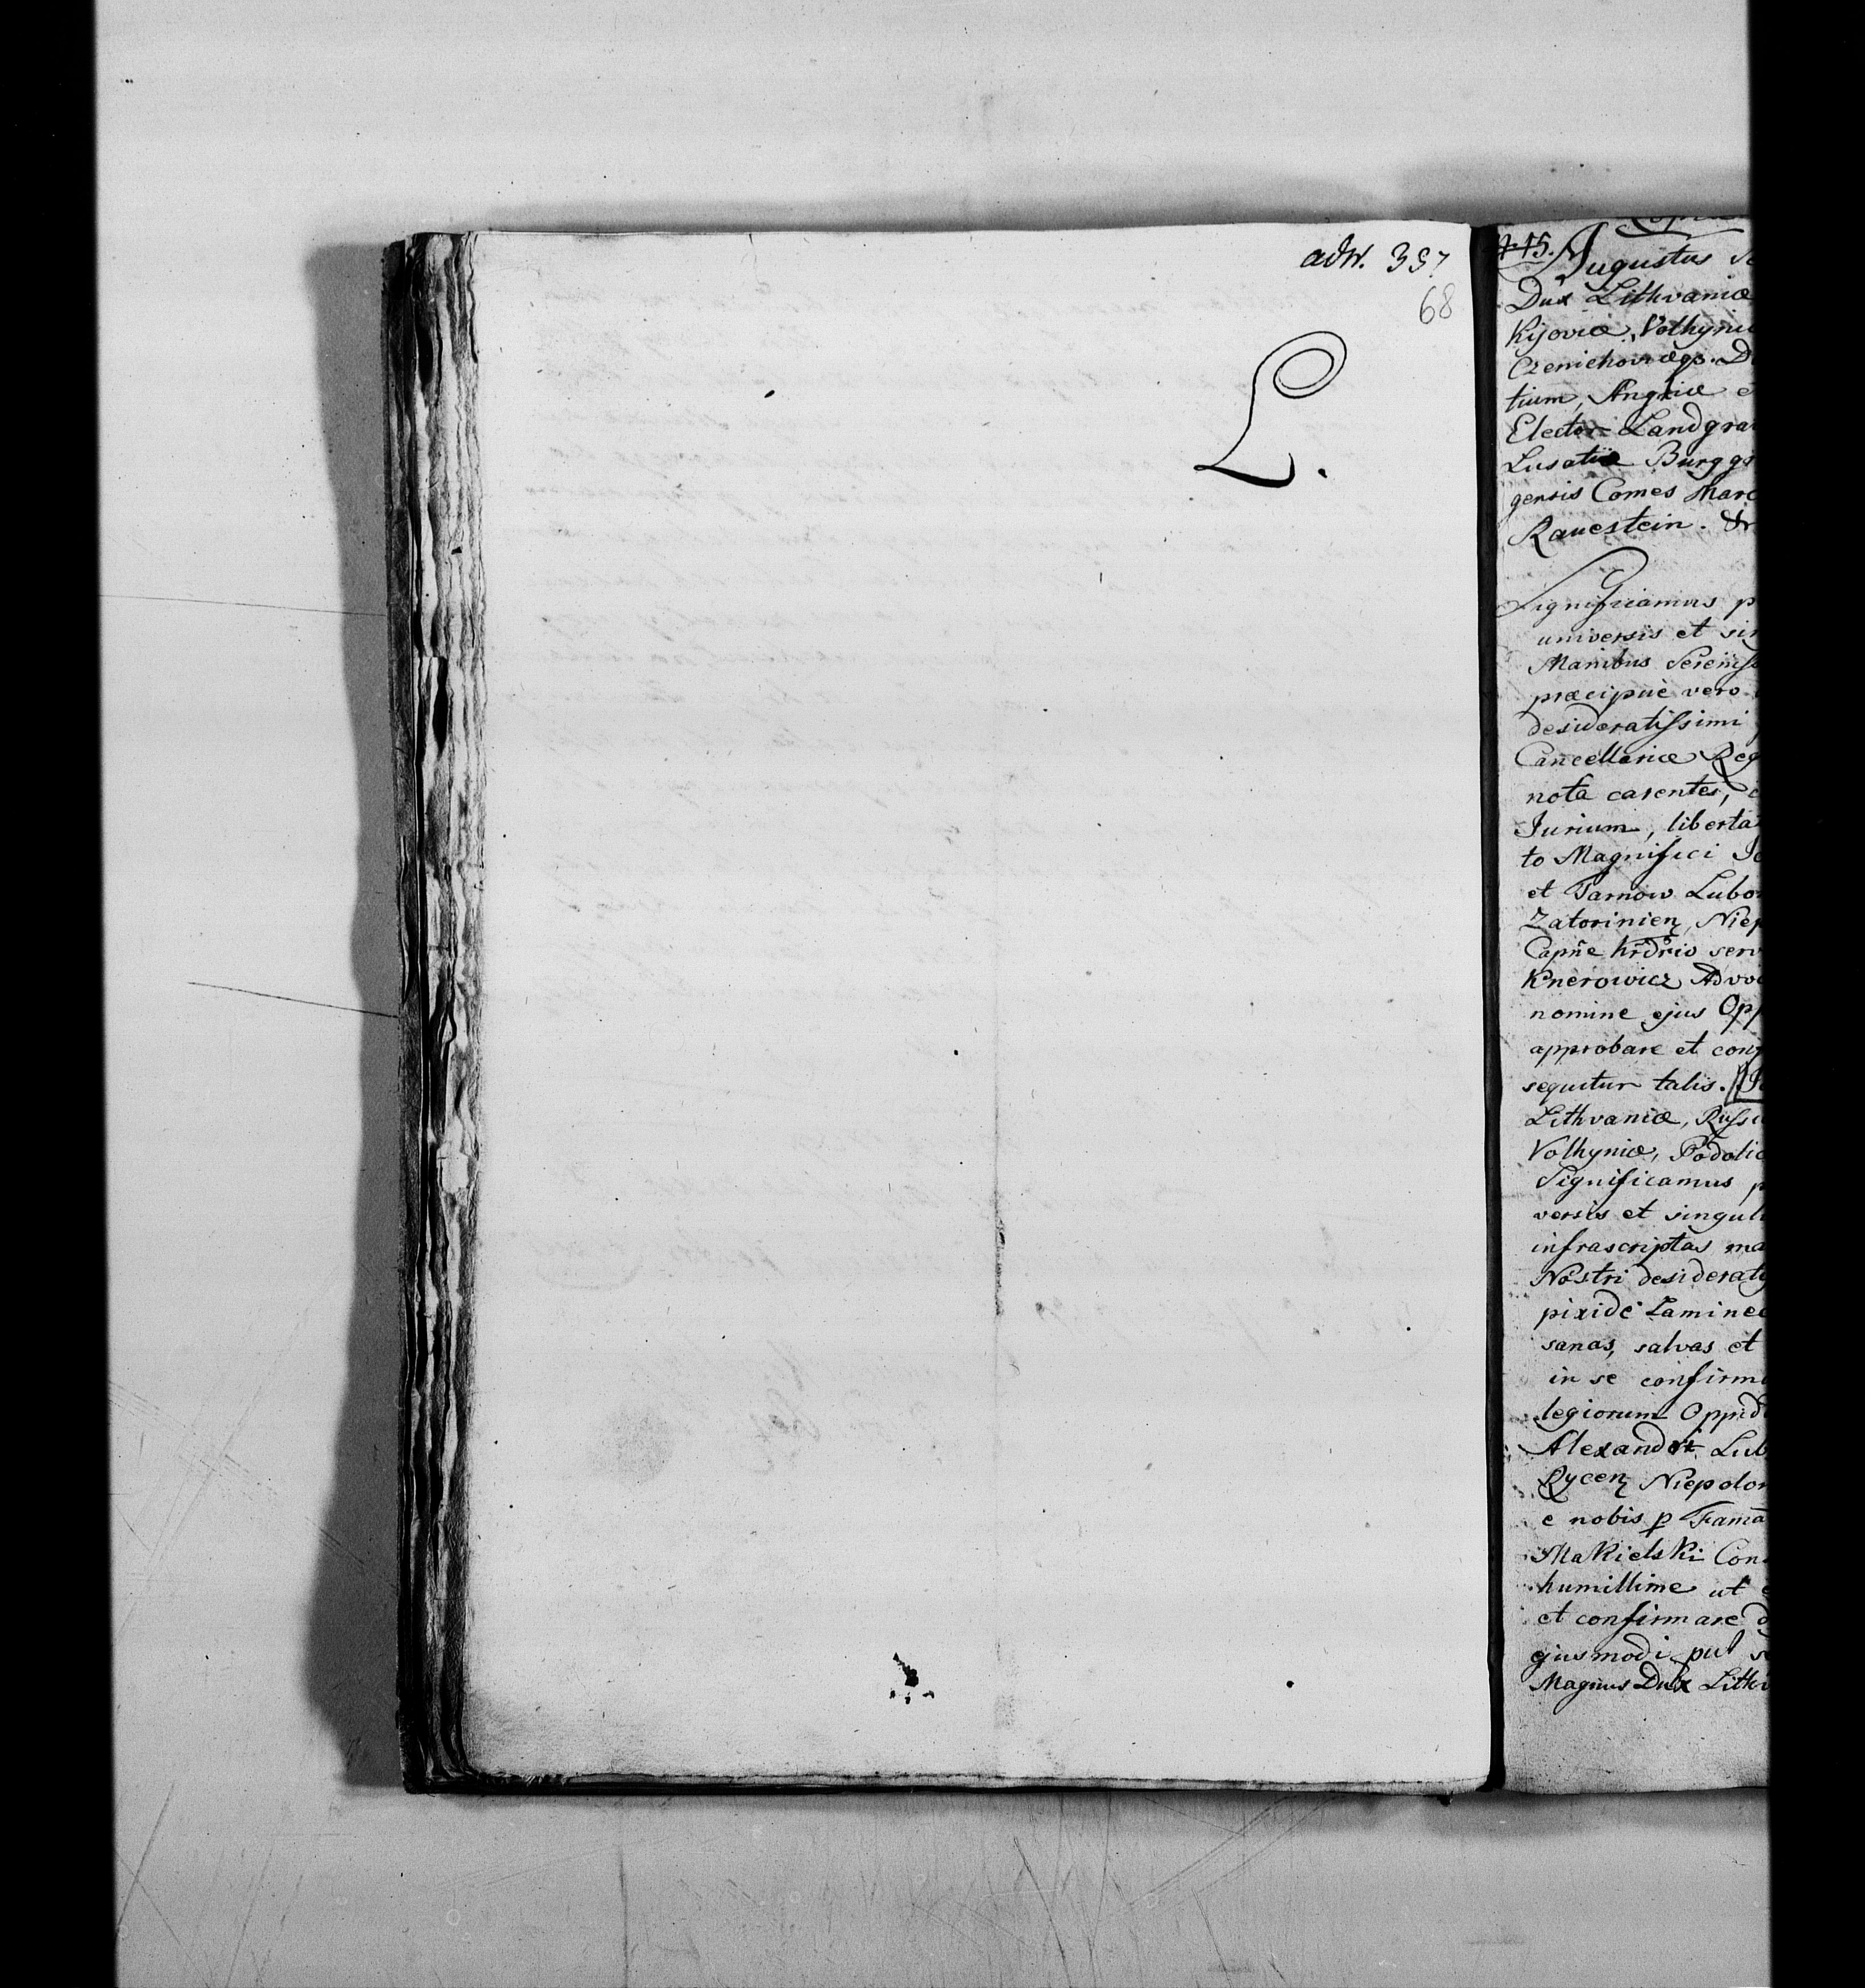 adN. 357
68
L.
Augustus
Dux Lithvaniæ
Kijoviæ, Volhyniæ
Czernichoviæqs. D
tium, Angriæ e
Elector Landgra
Lusatiæ Burggr
gensis Comes Marc
Ravestein. &
Significamus p
universis et sin
Manibus Serenisf
præcipuè vero
desideratissimi
Cancellariæ Reg
nota carentes,
Jurium, liberta
to Magnifici
et Tarnow Lubo
Zatorinien, Niep
Capñe
Knerowicz Advo
nomine ejus Opp
approbare et conf
sequitur talis.
Lithvaniæ, Russi
Volhyniæ, Podoli
Significamus p
versis et singul
infrascriptas ma
Nostri desiderati
pixide Lamine
sanas, salvas et
in se confirm
legiorum Oppid
Alexandri Lub
Rycen Niepolo
e nobis p Fama
Makielski Con
humillime ut
et confirmare
ejusmodi
Magnus Dux Lith